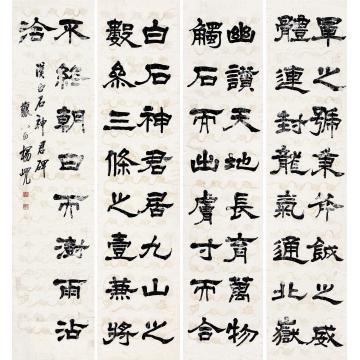 軍之號秉斧鉞之威
體連封龍氣通北嶽
幽讚天地長育萬物
觸石而出膚寸而合
白石神君居九山之
數參三條之壹兼將
不終朝日而澍雨沾
洽
漢白石神君碑
楊峴